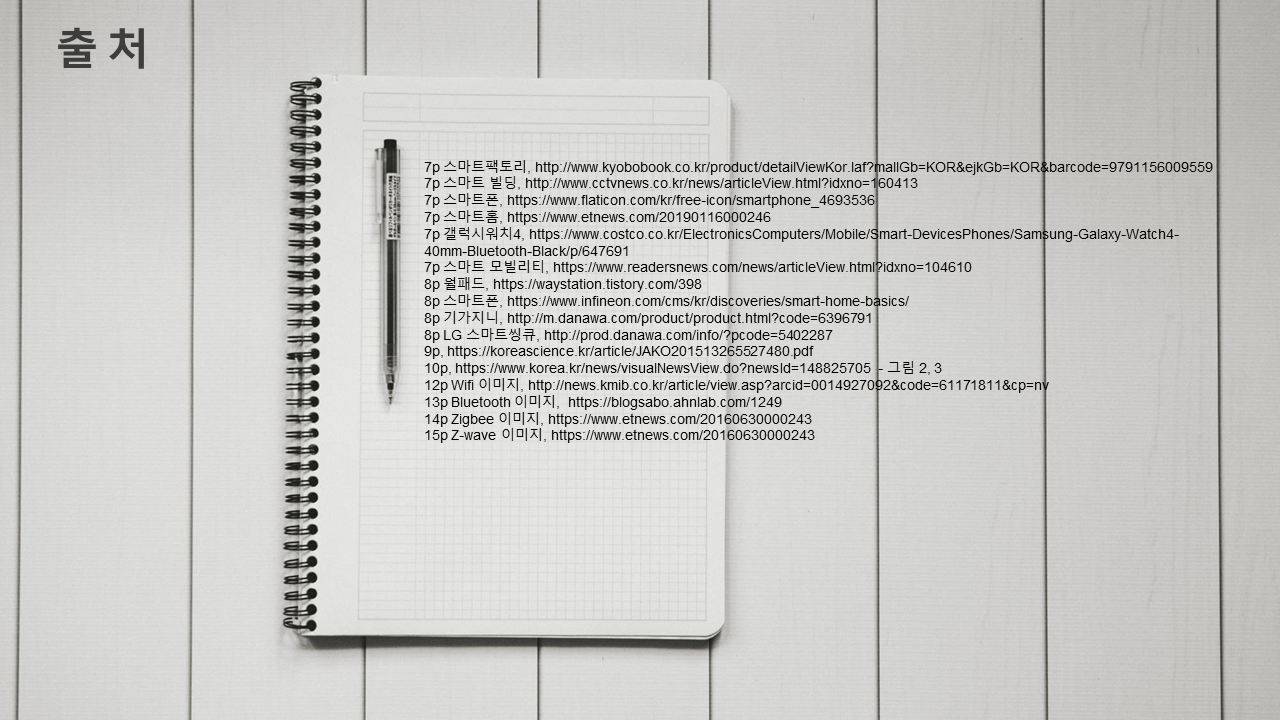 출 처
7p 스마트팩토리, http://www.kyobobook.co.kr/product/detailViewKor.laf?mallGb=KOR&ejkGb=KOR&barcode=9791156009559
7p 스마트 빌딩, http://www.cctvnews.co.kr/news/articleView.html?idxno=160413
7p 스마트폰, https://www.flaticon.com/kr/free-icon/smartphone_4693536
7p 스마트홈, https://www.etnews.com/20190116000246
7p 갤럭시워치4, https://www.costco.co.kr/ElectronicsComputers/Mobile/Smart-DevicesPhones/Samsung-Galaxy-Watch4-
40mm-Bluetooth-Black/p/647691
7p 스마트 모빌리티, https://www.readersnews.com/news/articleView.html?idxno=104610
8p 월패드, https://waystation.tistory.com/398
8p 스마트폰, https://www.infineon.com/cms/kr/discoveries/smart-home-basics/
8p 기가지니, http://m.danawa.com/product/product.html?code=6396791
8p LG 스마트씽큐, http://prod.danawa.com/info/?pcode=5402287
9p, https://koreascience.kr/article/JAKO201513265527480.pdf
10p, https://www.korea.kr/news/visualNewsView.do?newsId=148825705 - 그림 2, 3
12p Wifi 이미지, http://news.kmib.co.kr/article/view.asp?arcid=0014927092&code=61171811&cp=nv
13p Bluetooth 이미지, https://blogsabo.ahnlab.com/1249
14p Zigbee 이미지, https://www.etnews.com/20160630000243
15p Z-wave 이미지, https://www.etnews.com/20160630000243